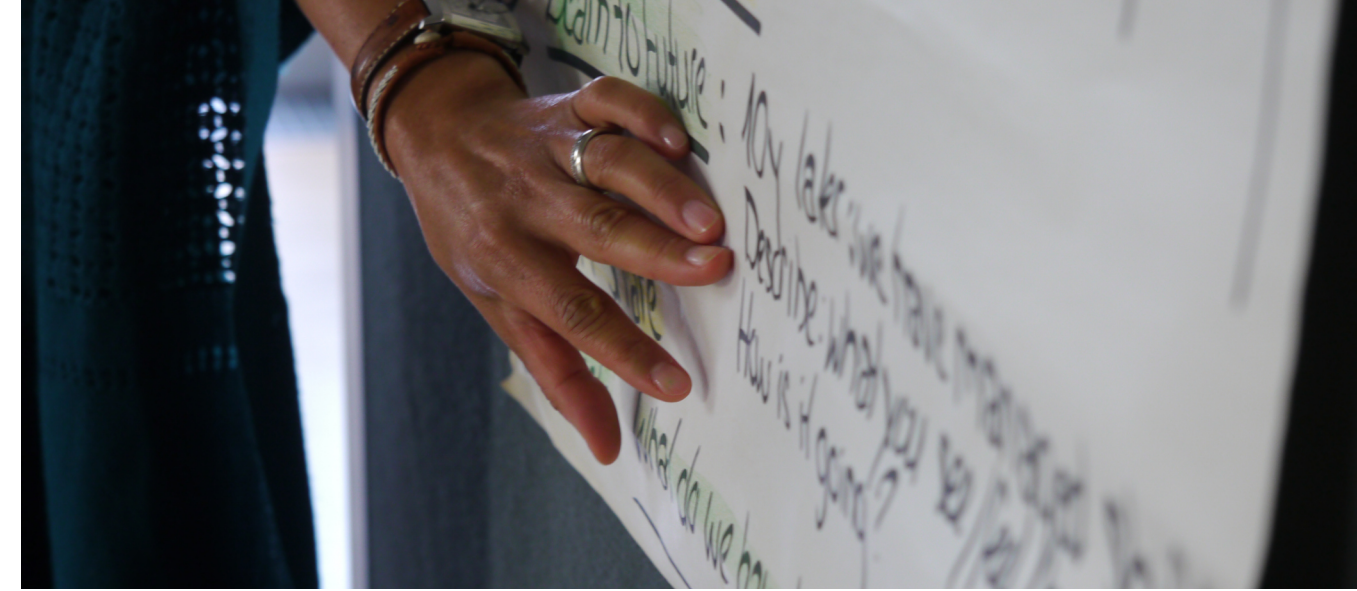 Beam to future: 10y later: we have managed
Describe: what you see/feel/
How is it going?
What do we